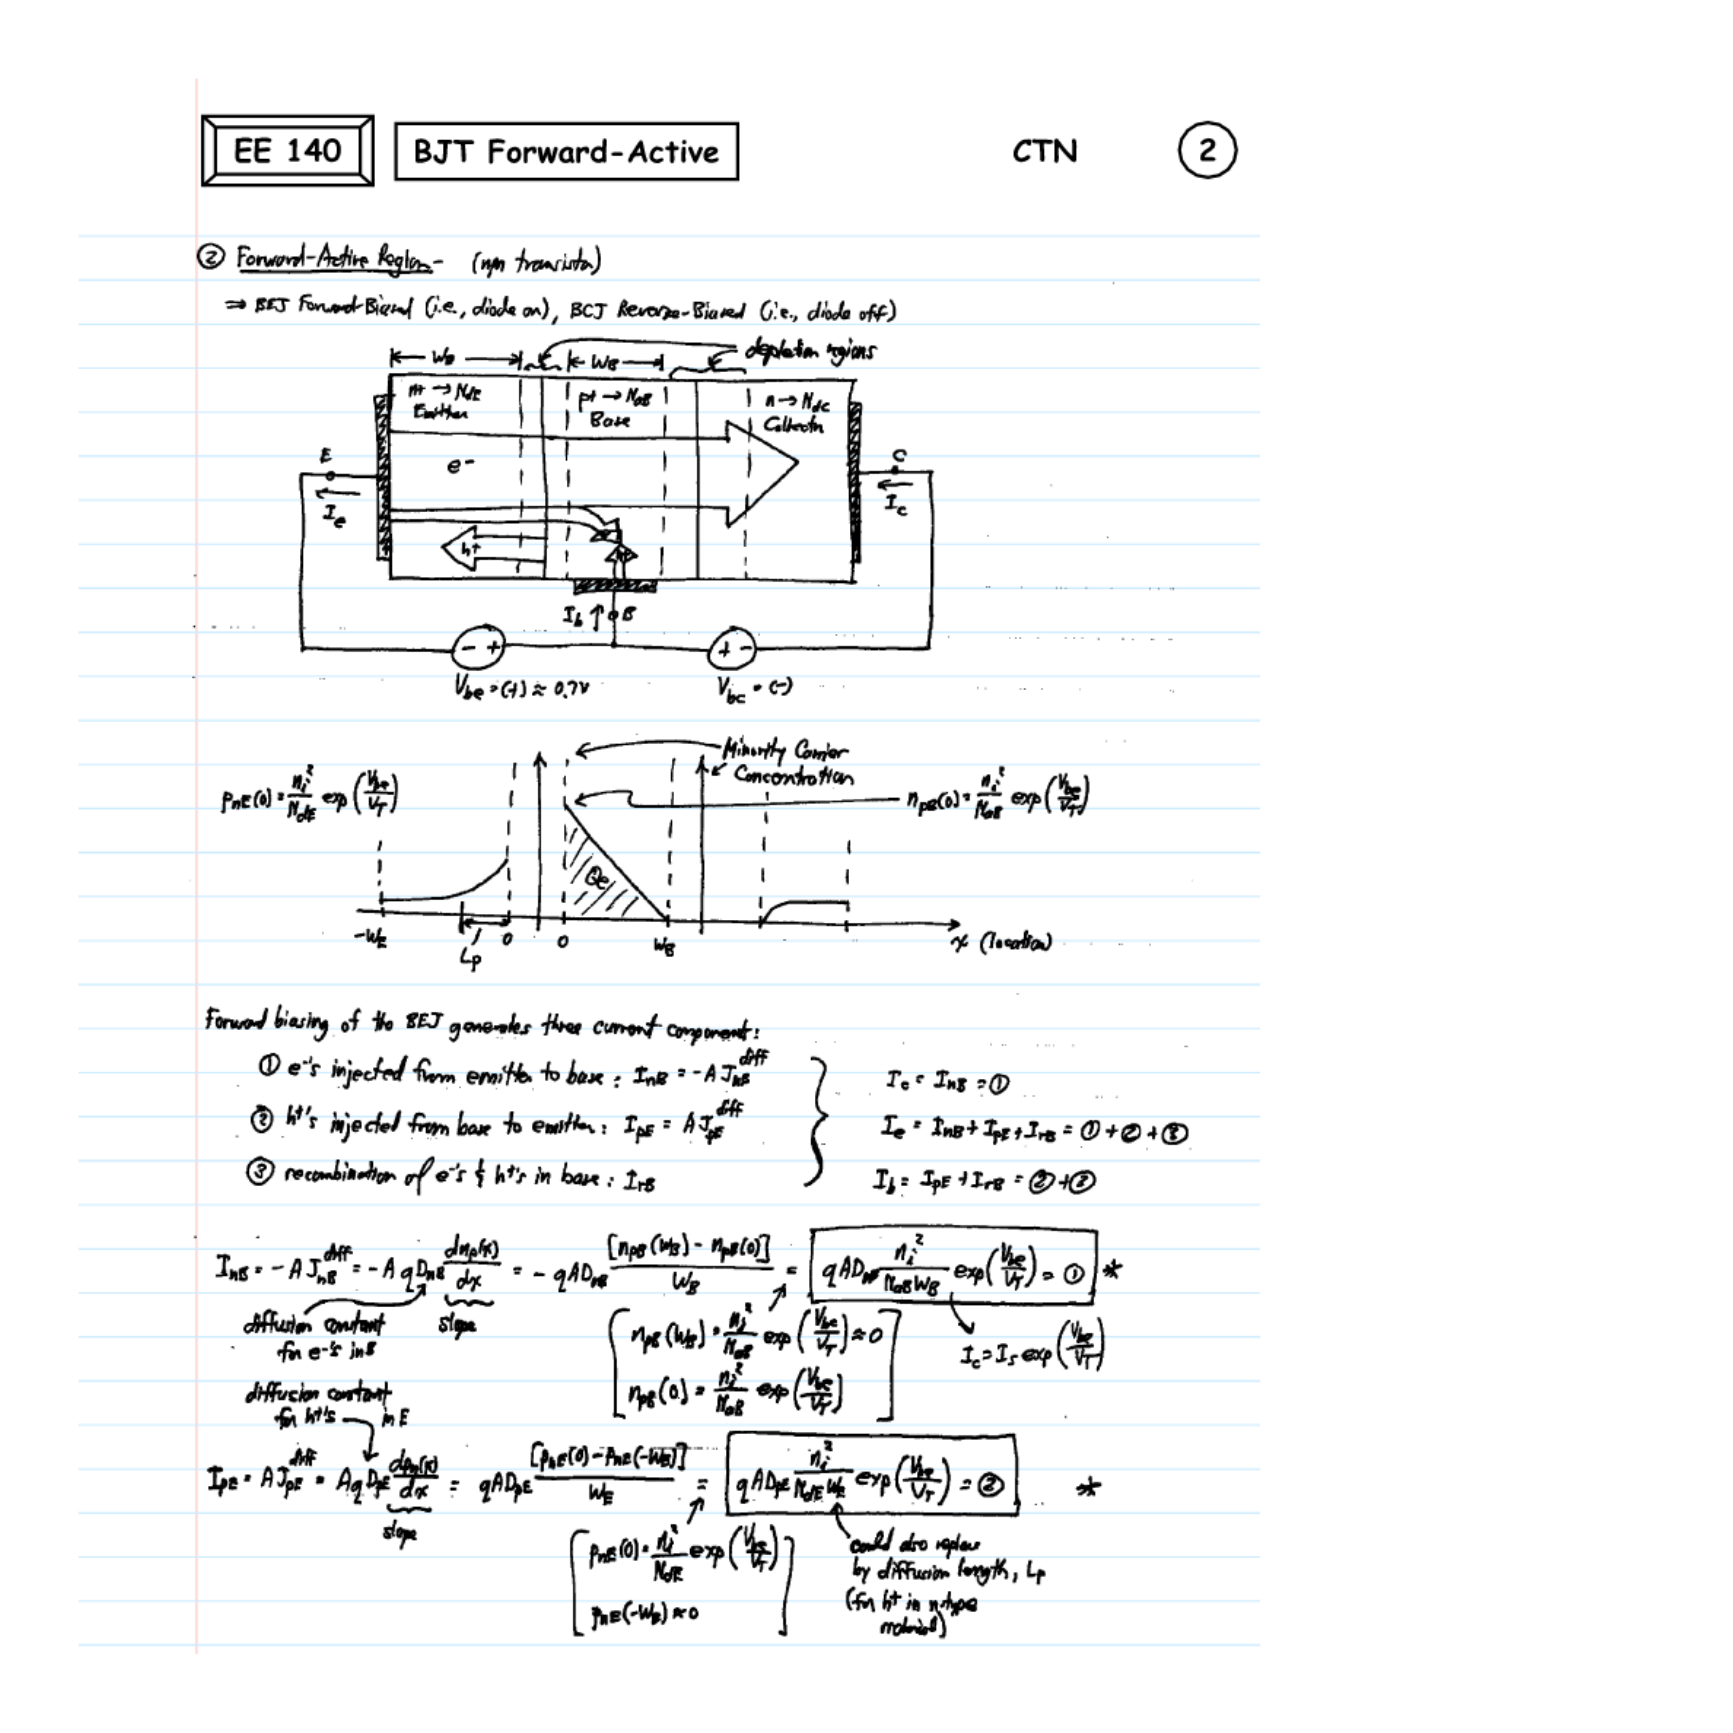 EE 140 BJT Forward-Active CTN 2
② Forward-Active Region- (npn transistor)
⇒ BEJ Forward-Biased (i.e., diode on), BCJ Reverse-Biased (i.e., diode off)
W_E W_B depletion regions
n+ → N_dE p+ → N_aB n → N_dC
Emitter Base Collector
E e⁻ C
I_e h+ I_c
I_b ↑ B
- + + -
V_be = (+) ≈ 0.7V V_bc = (-)
Minority Carrier
Concentration
p_nE(0) = n_i²/N_dE exp(V_be/V_T) n_pB(0) = n_i²/N_aB exp(V_be/V_T)
Q_e
-W_E L_p 0 0 W_B x (location)
Forward biasing of the BEJ generates three current components:
① e⁻'s injected from emitter to base: I_nB = -A J_nB^diff I_c = I_nB = ①
② h+'s injected from base to emitter: I_pE = A J_pE^diff I_e = I_nB + I_pE + I_rB = ① + ② + ③
③ recombination of e⁻'s & h+'s in base: I_rB I_b = I_pE + I_rB = ② + ③
I_nB = -A J_nB^diff = -A q D_nB dn_p(x)/dx = -qAD_nB [n_pB(W_B) - n_pB(0)]/W_B = qAD_nB n_i²/(N_aB W_B) exp(V_be/V_T) = ① *
diffusion constant slope
for e⁻'s in B
n_pB(W_B) = n_i²/N_aB exp(V_bc/V_T) ≈ 0 I_c = I_s exp(V_be/V_T)
n_pB(0) = n_i²/N_aB exp(V_be/V_T)
diffusion constant
for h+'s in E
I_pE = A J_pE^diff = A q D_pE dp_n(x)/dx = qAD_pE [p_nE(0) - p_nE(-W_E)]/W_E = qAD_pE n_i²/(N_dE W_E) exp(V_be/V_T) = ② *
slope
p_nE(0) = n_i²/N_dE exp(V_be/V_T)
p_nE(-W_E) ≈ 0
could also replace
by diffusion length, L_p
(for h+ in n-type
material)